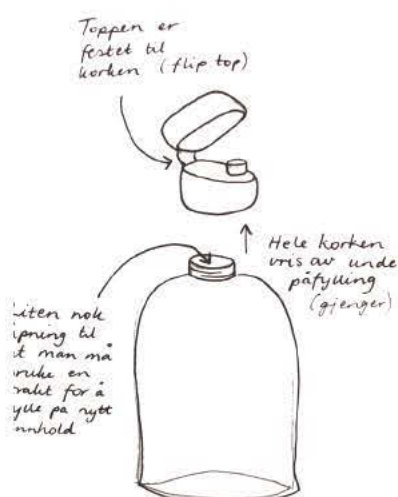 Toppen er
festet til
korken (flip top)
Hele korken
vris av unde
påfylling
(gjenger)
iten nok
pning til
t man må
ruke en
rakt for å
ylle på nytt
nnhold